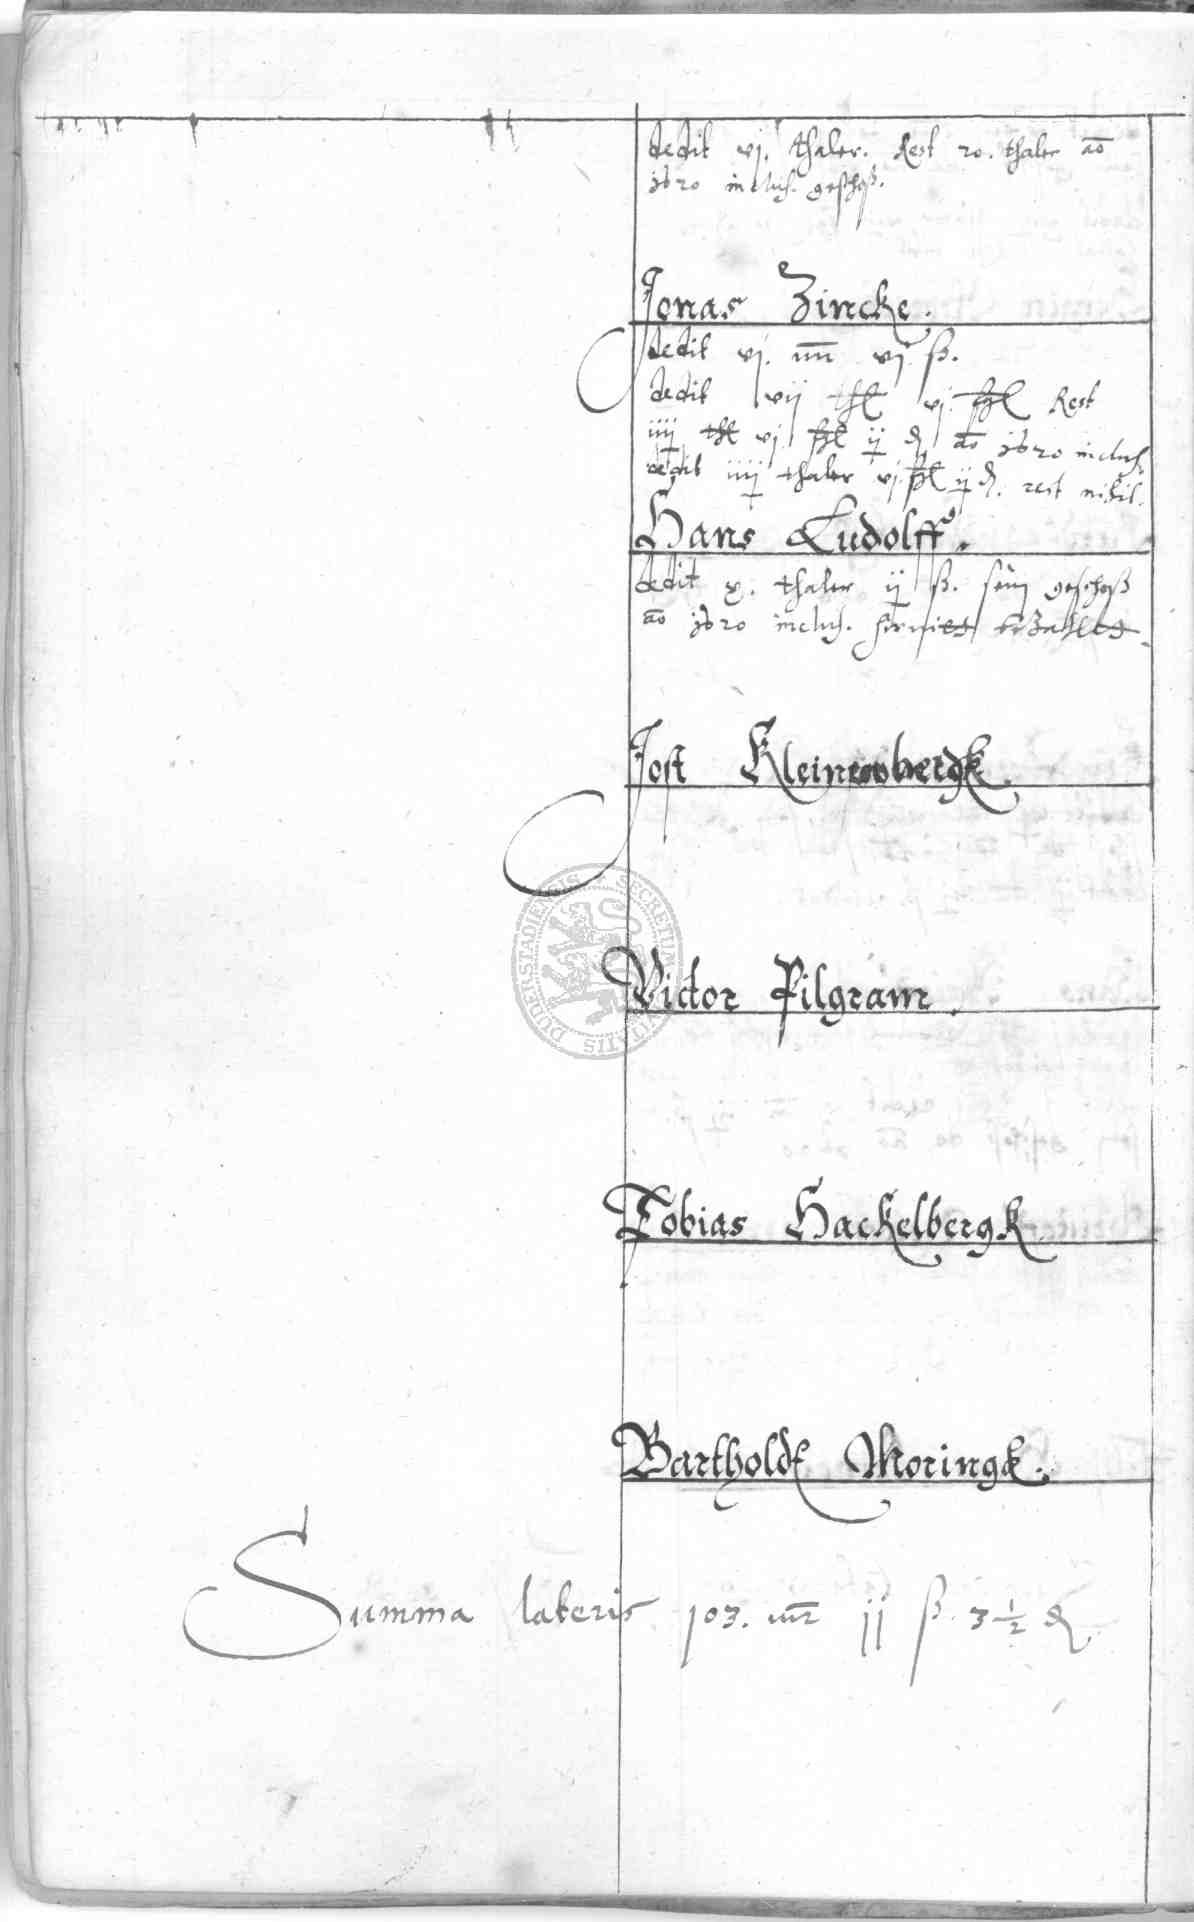 dedit vj. thaler. Rest 20. thaler ao
1620 inclus. geschoß.
Jonas Zincke.
dedit vj. mr vj ß.
dedit vij thl vj ßl Rest
iiij thl vj ßl ij ₰ ao 1620 inclus.
dedit iiij thaler vj ßl ij ₰. rest nihil.
Hans Ludolff.
dedit x. thaler ij ß. sein geschoß
ao 1620 inclus. hermit bezahlet
Jost Kleinenbergk.
Victor Pilgram.
Tobias Hackelbergk
Bartholdt Moringk.
Summa lateris 103. mr jj ß 3 1/2 ₰
DUDERSTADIENSIS SECRETUM CIVITATIS